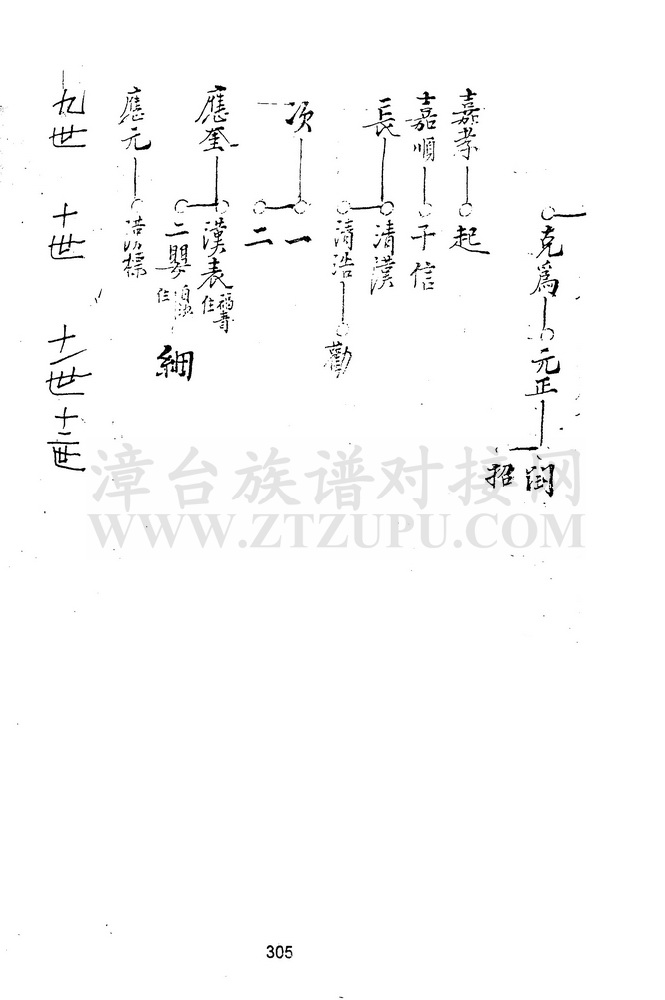 克為
元正
閏
招
嘉孝
起
嘉順
子信
長
清漢
清浩
勸
次
一
二
應奎
漢表
住福青
二嬰
住
細
應元
漢標
九世
十世
十一世
十二世
漳台族谱对接网
WWW.ZTZUPU.COM
305